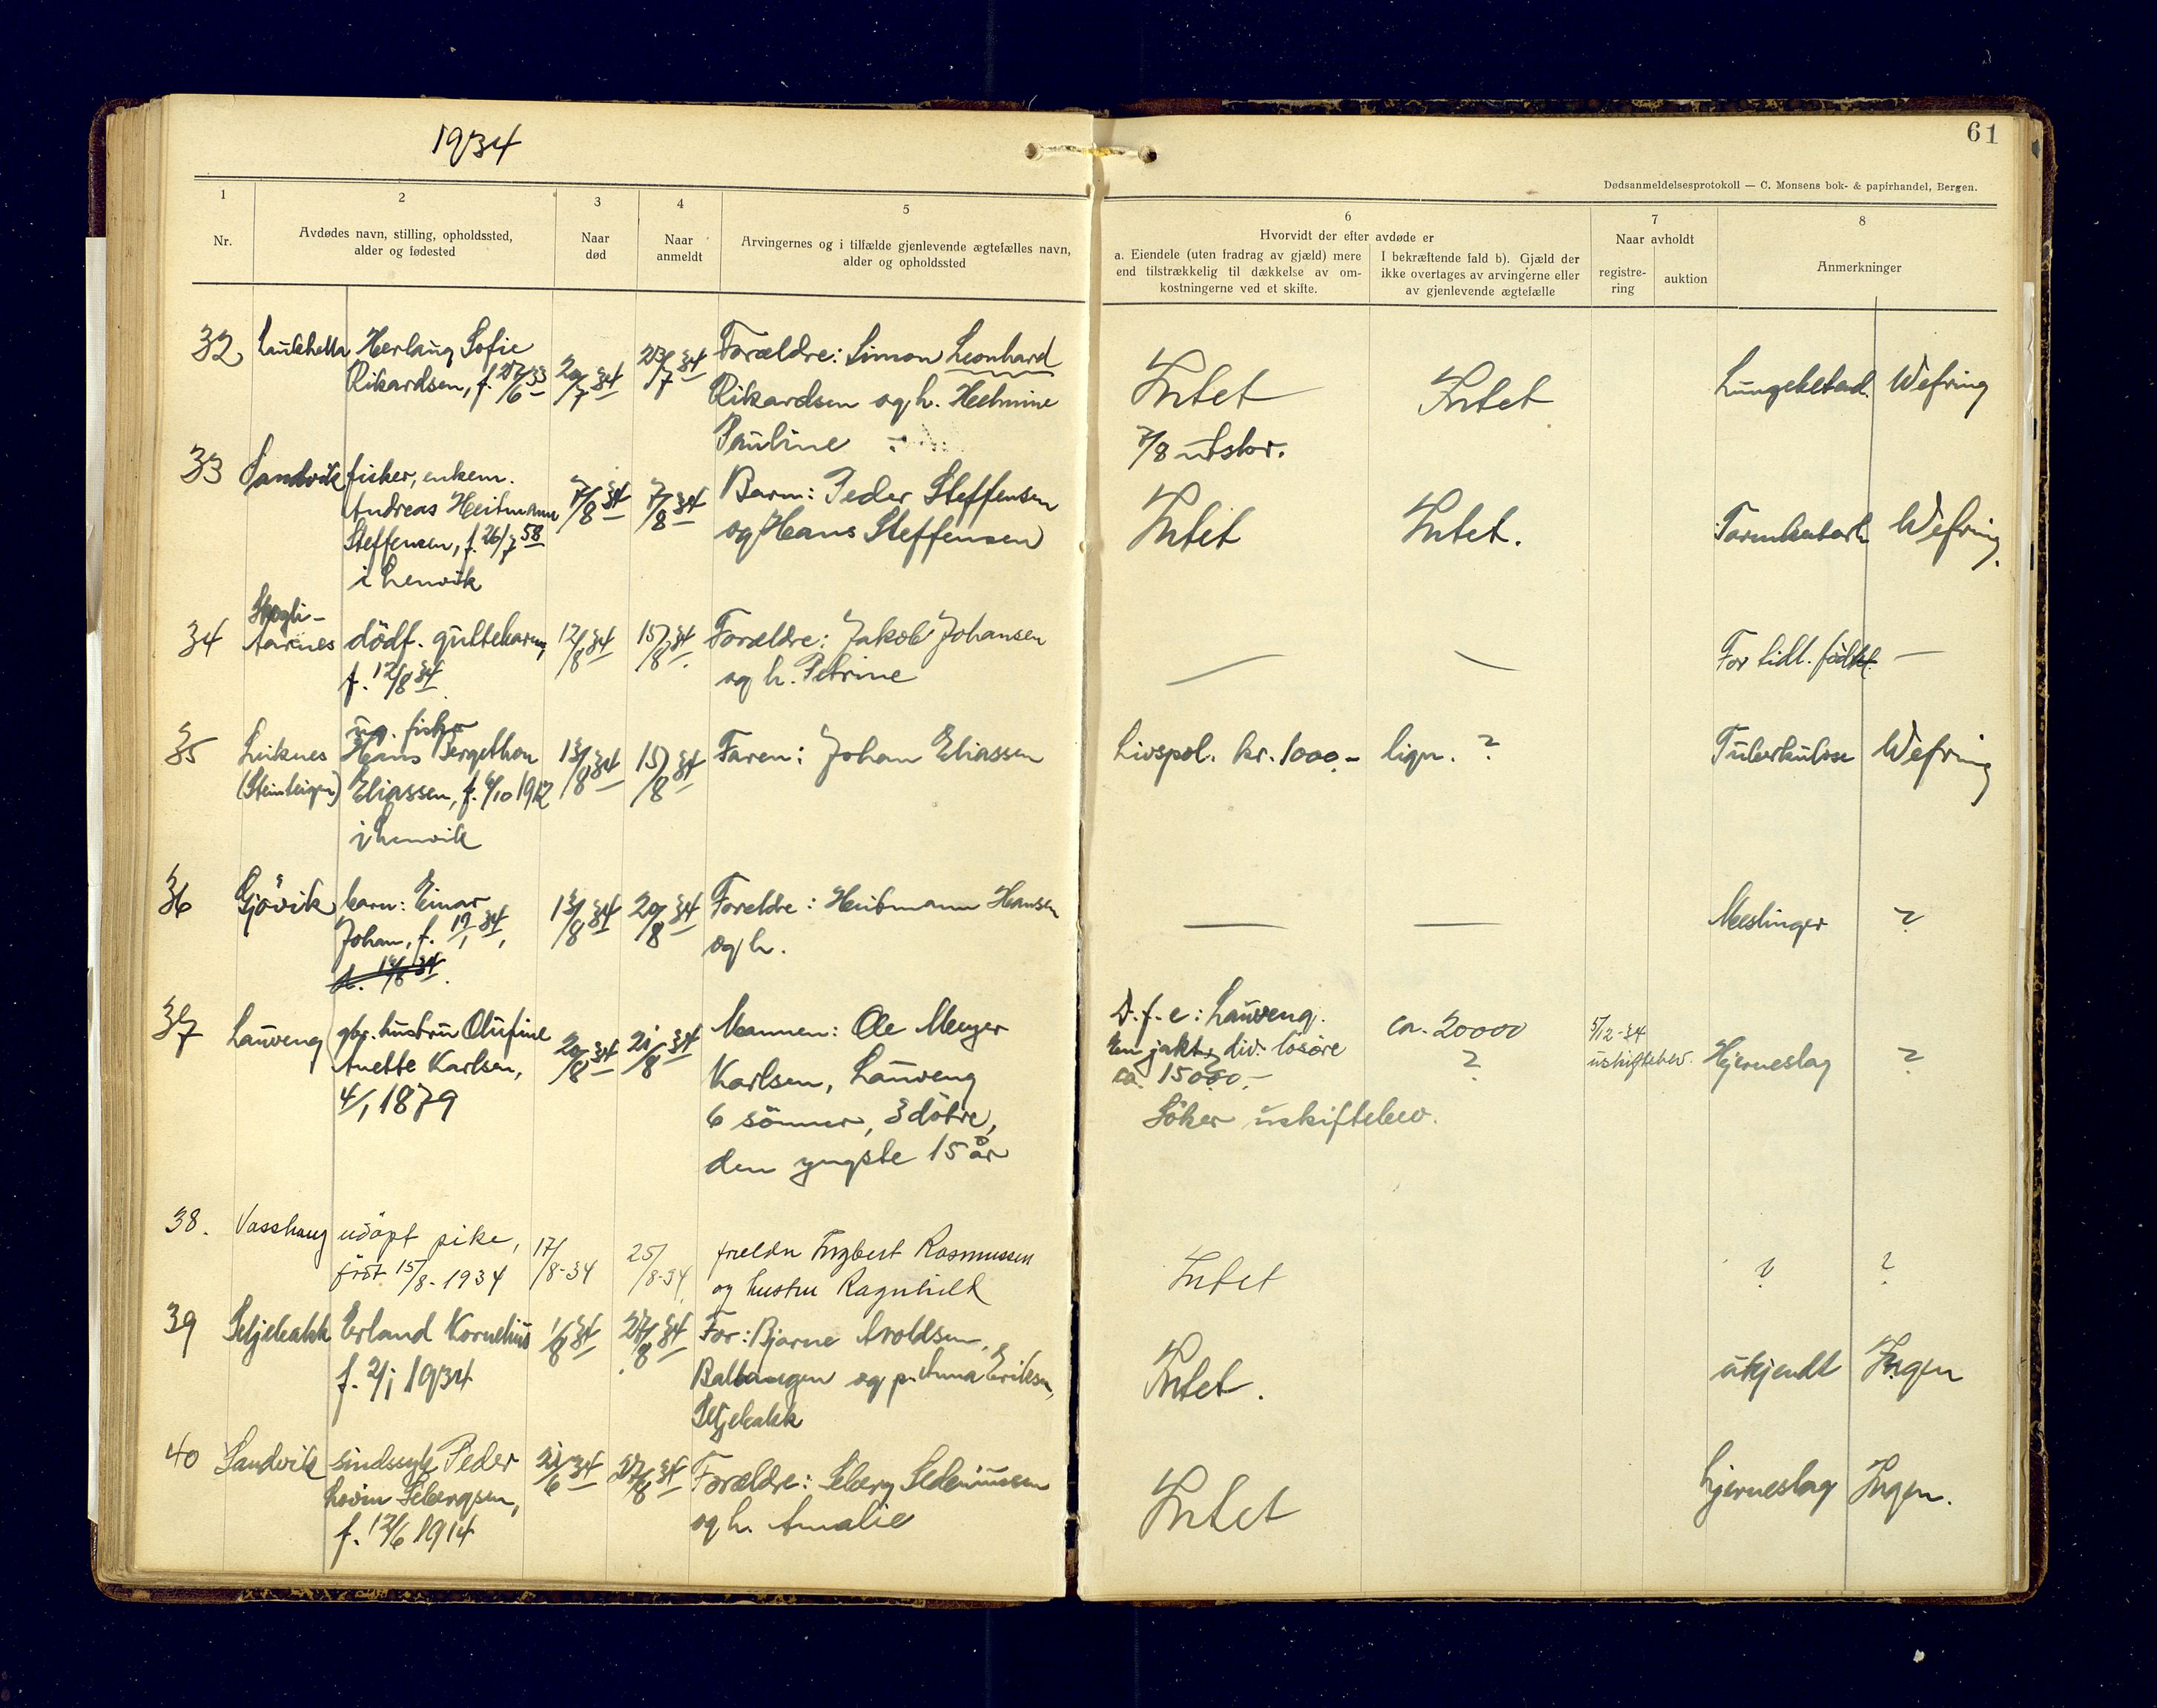 1934
61
Dødsanmeldelsesprotokoll — C. Monsens bok- & papirhandel, Bergen.
1
Nr.
2
Avdødes navn, stilling, opholdssted,
alder og fødested
3
Naar
død
4
Naar
anmeldt
5
Arvingernes og i tilfælde gjenlevende ægtefælles navn,
alder og opholdssted
6
Hvorvidt der efter avdøde er
a. Eiendele (uten fradrag av gjæld) mere
end tilstrækkelig til dækkelse av om-
kostningerne ved et skifte.
I bekræftende fald b). Gjæld der
ikke overtages av arvingerne eller
av gjenlevende ægtefælle
7
Naar avholdt
registre-
ring
auktion
8
Anmerkninger
32
Herlaug Sofie
Rikardsen, f. 27/6 33
20/7 34
23/7 34
Forældre: Simon Leonhard
Rikardsen og h. Helmine
Pauline
Intet
7/8 utskr.
Intet
Wefring
33
Sandvik
fisker, enkem.
Andreas Heitmann
Steffensen, f. 26/7 58
i Lenvik
7/8 34
7/8 34
Barn: Peder Steffensen
og Hans Steffensen
Intet
Intet.
Tarmkatarh
Wefring.
34
dödf. guttebarn,
f. 12/8 34
12/8 34
15/8 34.
Forældre: Jakob Johansen
og h. Petrine
—
—
For tidl. født.
—
35
Leiknes
(Steinleigen)
ug. fisker
Hans Bergethon
Eliassen, f. 6/10 1912
i Lenvik
13/8 34
15/8 34
Faren: Johan Eliassen
Livspol. kr. 1000.-
lign. ?
Tuberkulose
Wefring
36
Gjövik
barn: Einar
Johan, f. 17/1 34,
13/8 34
20/8 34
Foreldre: Heitmann Hansen
og h.
—
—
Meslinger
?
37
Lauveng
gbr. hustru Olufine
Anette Karlsen,
4/1 1879
20/8 34
21/8 34
Mannen: Ole Meyer
Karlsen, Lauveng
6 sönner, 3 dötre,
den yngste 15 år
D. f. e: Lauveng.
En jakt, div. lösöre
ca. 15000.-
Söker uskiftebev.
ca. 20000
?
5/12-34
uskiftebev.
Hjerneslag
?
38.
Vasshaug
udöpt pike,
fröt 15/8-1934
17/8-34
25/8-34
og hustru Ragnhild
Intet
?
?
39
Erland Kornelius
f. 2/1 1934
1/8 34
27/8 34
For: Bjarne Aroldsen,
Ballangen og p. Anna Eriksen,
Intet.
ukjendt
Ingen
40
Sandvik
sindssyk Peder
f. 12/6 1914
21/6 34
27/8 34
og h. Amalie
Intet
hjerneslag
Ingen.